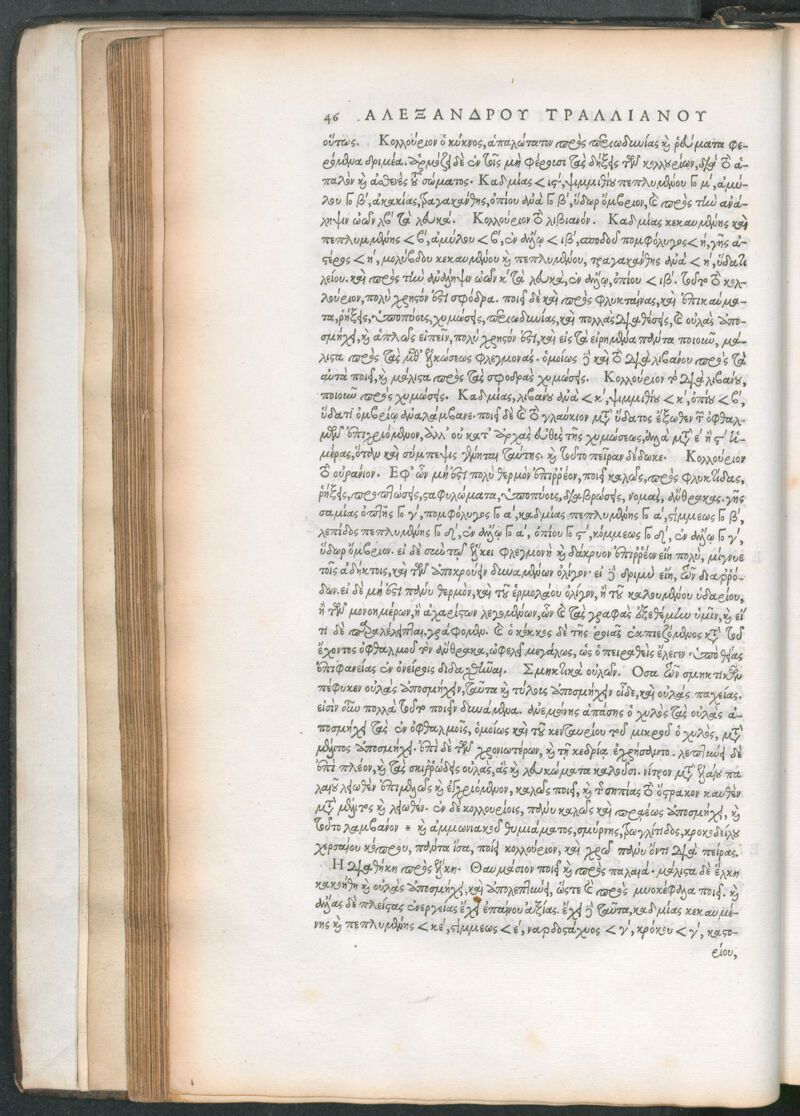 46 ΑΛΕΞΑΝΔΡΟΥ ΤΡΑΛΛΙΑΝΟΥ
οὕτως. Κολλούριον ὁ κύκνος, ἁπαλώτατον πρὸς περιωδυνίας καὶ ῥεύματα φε-
ρόμενα δριμέα. ἁρμόζει δὲ ἐν τοῖς μὴ φέρουσι τὰς δήξεις τῶν κολλουρίων, διὰ τὸ ἁ-
παλὸν καὶ ἀσθενὲς τοῦ σώματος. Καδμίας < ιϛ΄, ψιμμιθίου πεπλυμένου μ΄, ἀμύ-
λου β΄, ἀκακίας, τραγακάνθης, ὀπίου ἀνὰ β΄, ὕδωρ ὄμβριον, καὶ πρὸς τὴν ἀνά-
ληψιν ὠῶν τὰ λευκά. Κολλούριον τὸ λιβιανόν. Καδμίας κεκαυμένης καὶ
πεπλυμένης < ἀμύλου < ἐν ἄλλῳ < ιβ΄, σποδοῦ πομφόλυγος < η΄, γῆς ἀ-
στέρος < η΄, μολύβδου κεκαυμένου καὶ πεπλυμένου, τραγακάνθης ἀνὰ < η΄, ὕδατι
λείου. καὶ πρὸς τὴν ἀνάληψιν ὠῶν κ΄ τὰ λευκά, ἐν ἄλλῳ, ὀπίου < ιβ΄. τοῦτο τὸ κολ-
λούριον, πολὺ χρηστόν ἐστι σφόδρα. ποιεῖ δὲ καὶ πρὸς φλυκταίνας, καὶ ἐπικαύμα-
τα, ῥήξεις, ὑποπύους, χυμώσεις, περιωδυνίας, καὶ πολλὰς διαθέσεις, καὶ οὐλὰς ἀπο-
σμήχει, καὶ ἁπλῶς εἰπεῖν, πολὺ χρηστόν ἐστι, καὶ εἰς τὰ εἰρημένα πάντα ποιοῦν, μά-
λιστα πρὸς τὰς μεθ' ἑλκώσεως φλεγμονάς. ὁμοίως δὲ καὶ τὸ διαλιβάνου πρὸς τὰ
αὐτὰ ποιεῖ, καὶ μάλιστα πρὸς τὰς σφοδρὰς χυμώσεις. Κολλούριον τὸ διαλιβάνου,
ποιοῦν πρὸς χυμώσεις. Καδμίας, λιβάνου ἀνὰ < κ΄, ψιμμιθίου < κ΄, ὀπίου <
ὕδατι ὀμβρίῳ ἀναλάμβανε. ποιεῖ δὲ καὶ τὸ γλαύκιον μετὰ ὕδατος ἔξωθεν τῶν ὀφθαλ-
μῶν ἐπιχριόμενον, ἀλλ' οὐ κατ' ἀρχὰς εὐθὺς τῆς χυμώσεως, ἀλλὰ μετὰ ε΄ ἢ ϛ΄ ἡ-
μέρας, ὅταν καὶ σύμπεψις γένηται ταύτης. καὶ τοῦτο πεῖραν δέδωκε. Κολλούριον
τὸ οὐράνιον. Ἐφ' ὧν μή ἐστι πολὺ θερμὸν ἐπιῤῥέον, ποιεῖ καλῶς, πρὸς φλυκτίδας,
ῥήξεις, προπτώσεις, σταφυλώματα, ὑποπύους, διαβρώσεις, νομάς, ἄνθρακας. γῆς
σαμίας ὀπτῆς γ΄, πομφόλυγος α΄, καδμίας πεπλυμένης α΄, στίμμεως β΄,
λεπίδος πεπλυμένης ἐν ἄλλῳ α΄, ὀπίου ϛ΄, κόμμεως ἐν ἄλλῳ γ΄,
ὕδωρ ὄμβριον. εἰ δὲ σὺν τῷ ἕλκει φλεγμονὴ καὶ δάκρυον ἐπιῤῥέον εἴη πολύ, μίγνυε
τοῖς ἀδήκτοις, καὶ τῶν ἀποκρούειν δυναμένων ὀλίγον. εἰ δὲ δριμὺ εἴη, τῶν διαῤῥό-
δων. εἰ δὲ μή ἐστι πάνυ θερμόν, καὶ τοῦ ἑρμολάου ὀλίγον, ἢ τοῦ καλουμένου ὑδαρίου,
ἢ τῶν μονοημέρων, ἢ ἀχαρίστων λεγομένων, ὧν καὶ τὰς γραφὰς ἐξεθέμην ὑμῖν, καὶ εἴ
τι δὲ παραλέλειπται, γράφομεν. καὶ ὁ κόκκος δὲ τῆς ῥοιᾶς ἐκπιεζόμενος κατὰ τοῦ
ἔχοντος ὀφθαλμοῦ τὸν ἄνθρακα, ὠφελεῖ μεγάλως, ὡς ὁ πειραθεὶς ἔλεγεν ὑπὸ θείας
ἐπιφανείας ἐν ὀνείροις διδαχθῆναι. Σμηκτικὰ οὐλῶν. Ὅσα τῶν σμηκτικῶν
πέφυκεν οὐλὰς ἀποσμήχειν, ταῦτα καὶ τύλους ἀποσμήχειν οἶδε, καὶ οὐλὰς παχείας.
εἰσὶν οὖν πολλὰ τοῦτο ποιεῖν δυνάμενα. ἀνεμώνης ἁπάσης ὁ χυλὸς τὰς οὐλὰς ἀ-
ποσμήχει τὰς ἐν ὀφθαλμοῖς, ὁμοίως καὶ τοῦ κενταυρίου τοῦ μικροῦ ὁ χυλός, μετὰ
μέλιτος ἀποσμήχει. ἐπὶ δὲ τῶν χρονιωτέρων, καὶ τῇ κεδρίᾳ ἐχρήσαντο. λεπτύνει δὲ
ἐπὶ πλέον, καὶ τὰς σκιῤῥώδεις οὐλάς, ἃς καὶ λευκώματα καλοῦσι. νίτρον μετὰ ἐλαίου πα-
λαιοῦ λειωθὲν ἐπιμελῶς καὶ ἐγχριόμενον, καλῶς ποιεῖ, καὶ τῆς σηπίας τὸ ὄστρακον καυθὲν
μετὰ μέλιτος καὶ λειωθέν. ἐν δὲ κολλουρίοις, πάνυ καλῶς καὶ πραέως ἀποσμήχει, καὶ
τοῦτο λαμβάνον * καὶ ἀμμωνιακοῦ θυμιάματος, σμύρνης, τρωγλίτιδος, κροκοδείλου
χερσαίου κόπρου, πάντα ἴσα, ποίει κολλούριον, καὶ χρῶ πάνυ ὄντι διὰ πείρας.
Ἡ διαθήκη πρὸς ἕλκη. Θαυμάσιον ποιεῖ καὶ πρὸς παλαιά. μάλιστα δὲ ἕλκη
κακοήθη καὶ οὐλὰς ἀποσμήχει, καὶ ἀπολεπτύνει, ὥστε καὶ πρὸς μυοκέφαλα ποιεῖ. καὶ
ἄλλας δὲ πλείστας ἐνεργείας ἔχει ἐπαίνου ἀξίας. ἔχει δὲ ταῦτα, καδμίας κεκαυμέ-
νης καὶ πεπλυμένης < κε΄, στίμμεως < ε΄, ναρδοστάχυος < γ΄, κρόκου < γ΄, καστο-
ρίου,